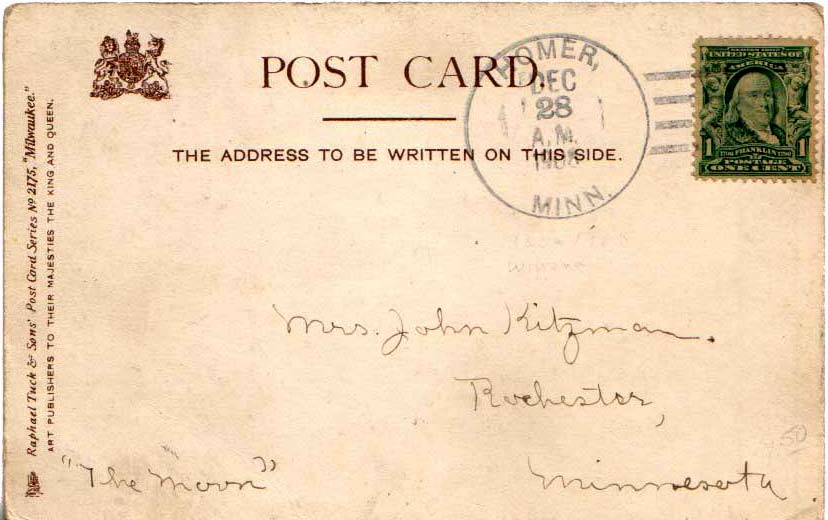 POST CARD.
THE ADDRESS TO BE WRITTEN ON THIS SIDE.
HOMER,
DEC
28
A.M.
MINN.
UNITED STATES OF
AMERICA
1 FRANKLIN 1
POSTAGE
ONE CENT
Raphael Tuck & Sons' Post Card Series No 2175, "Milwaukee."
ART PUBLISHERS TO THEIR MAJESTIES THE KING AND QUEEN.
Winona
Mrs. John Kitzman.
Rochester,
Minnesota
"The Moon"
.50